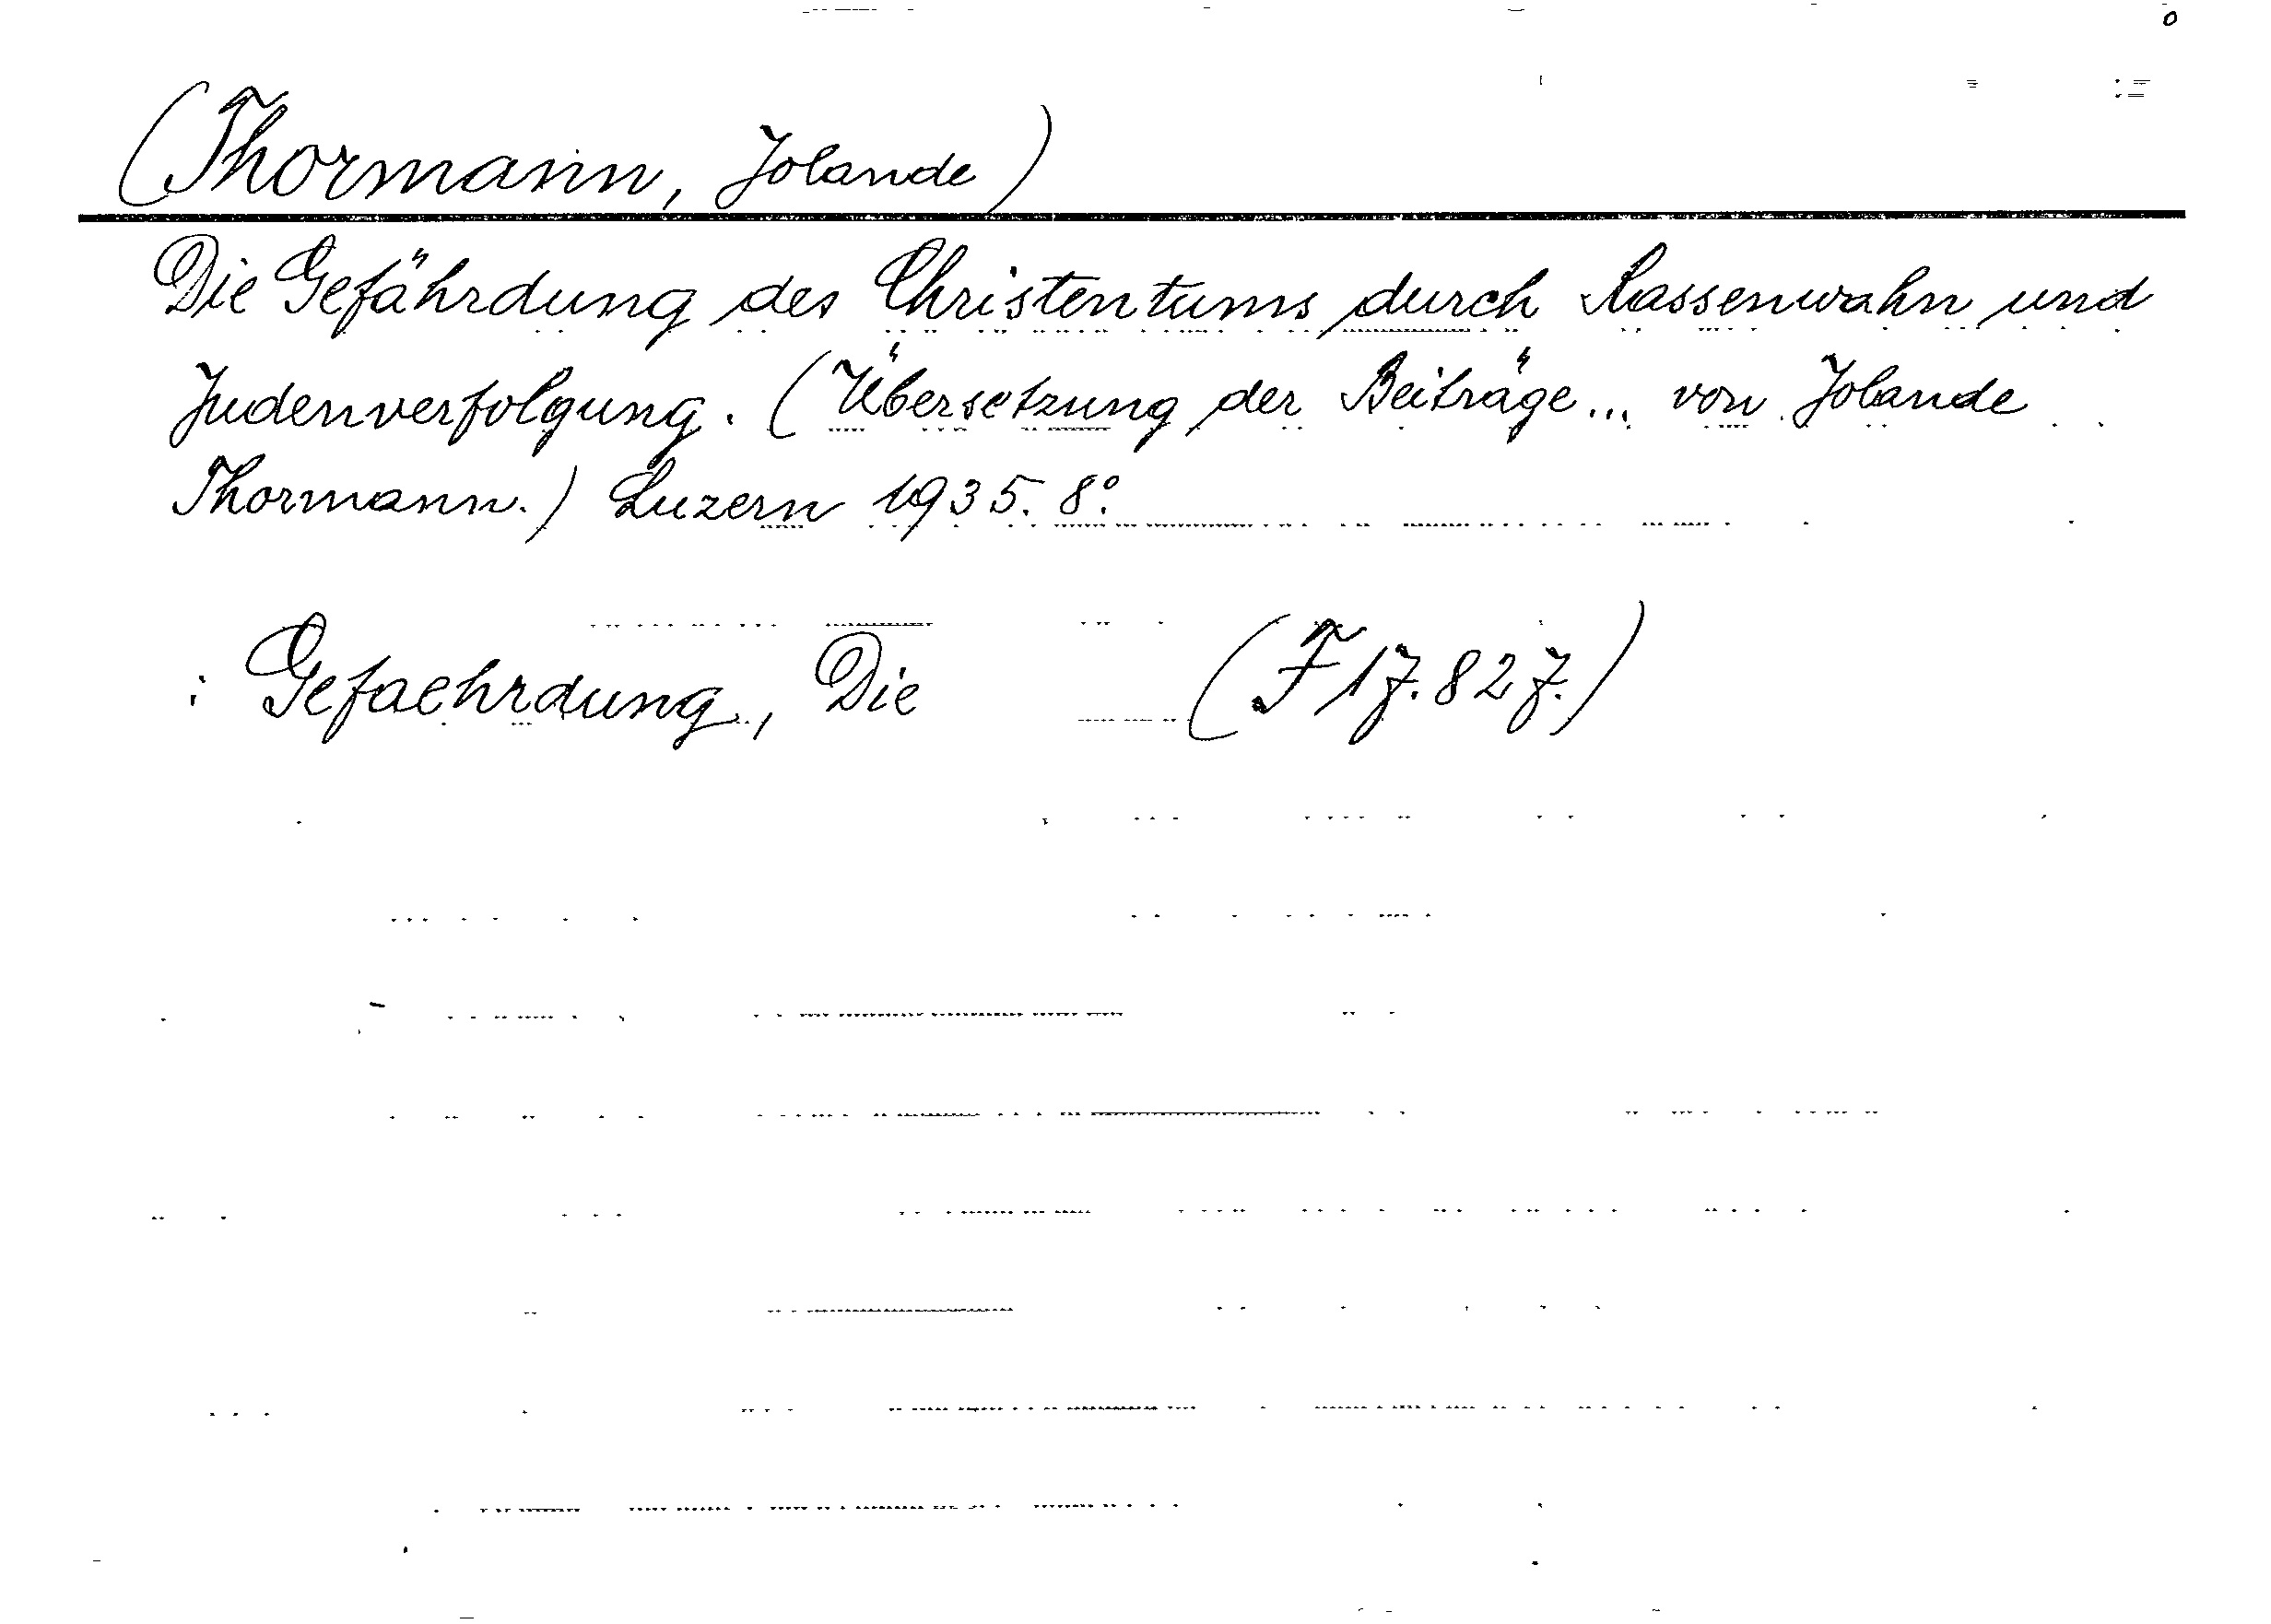 (Thormann, Jolande)
Die Gefährdung des Christentums durch Rassenwahn und
Judenverfolgung. (Übersetzung der Beiträge... von Jolande
Thormann.) Luzern 1935. 8°.
: Gefaehrdung, Die (F 17.827.)